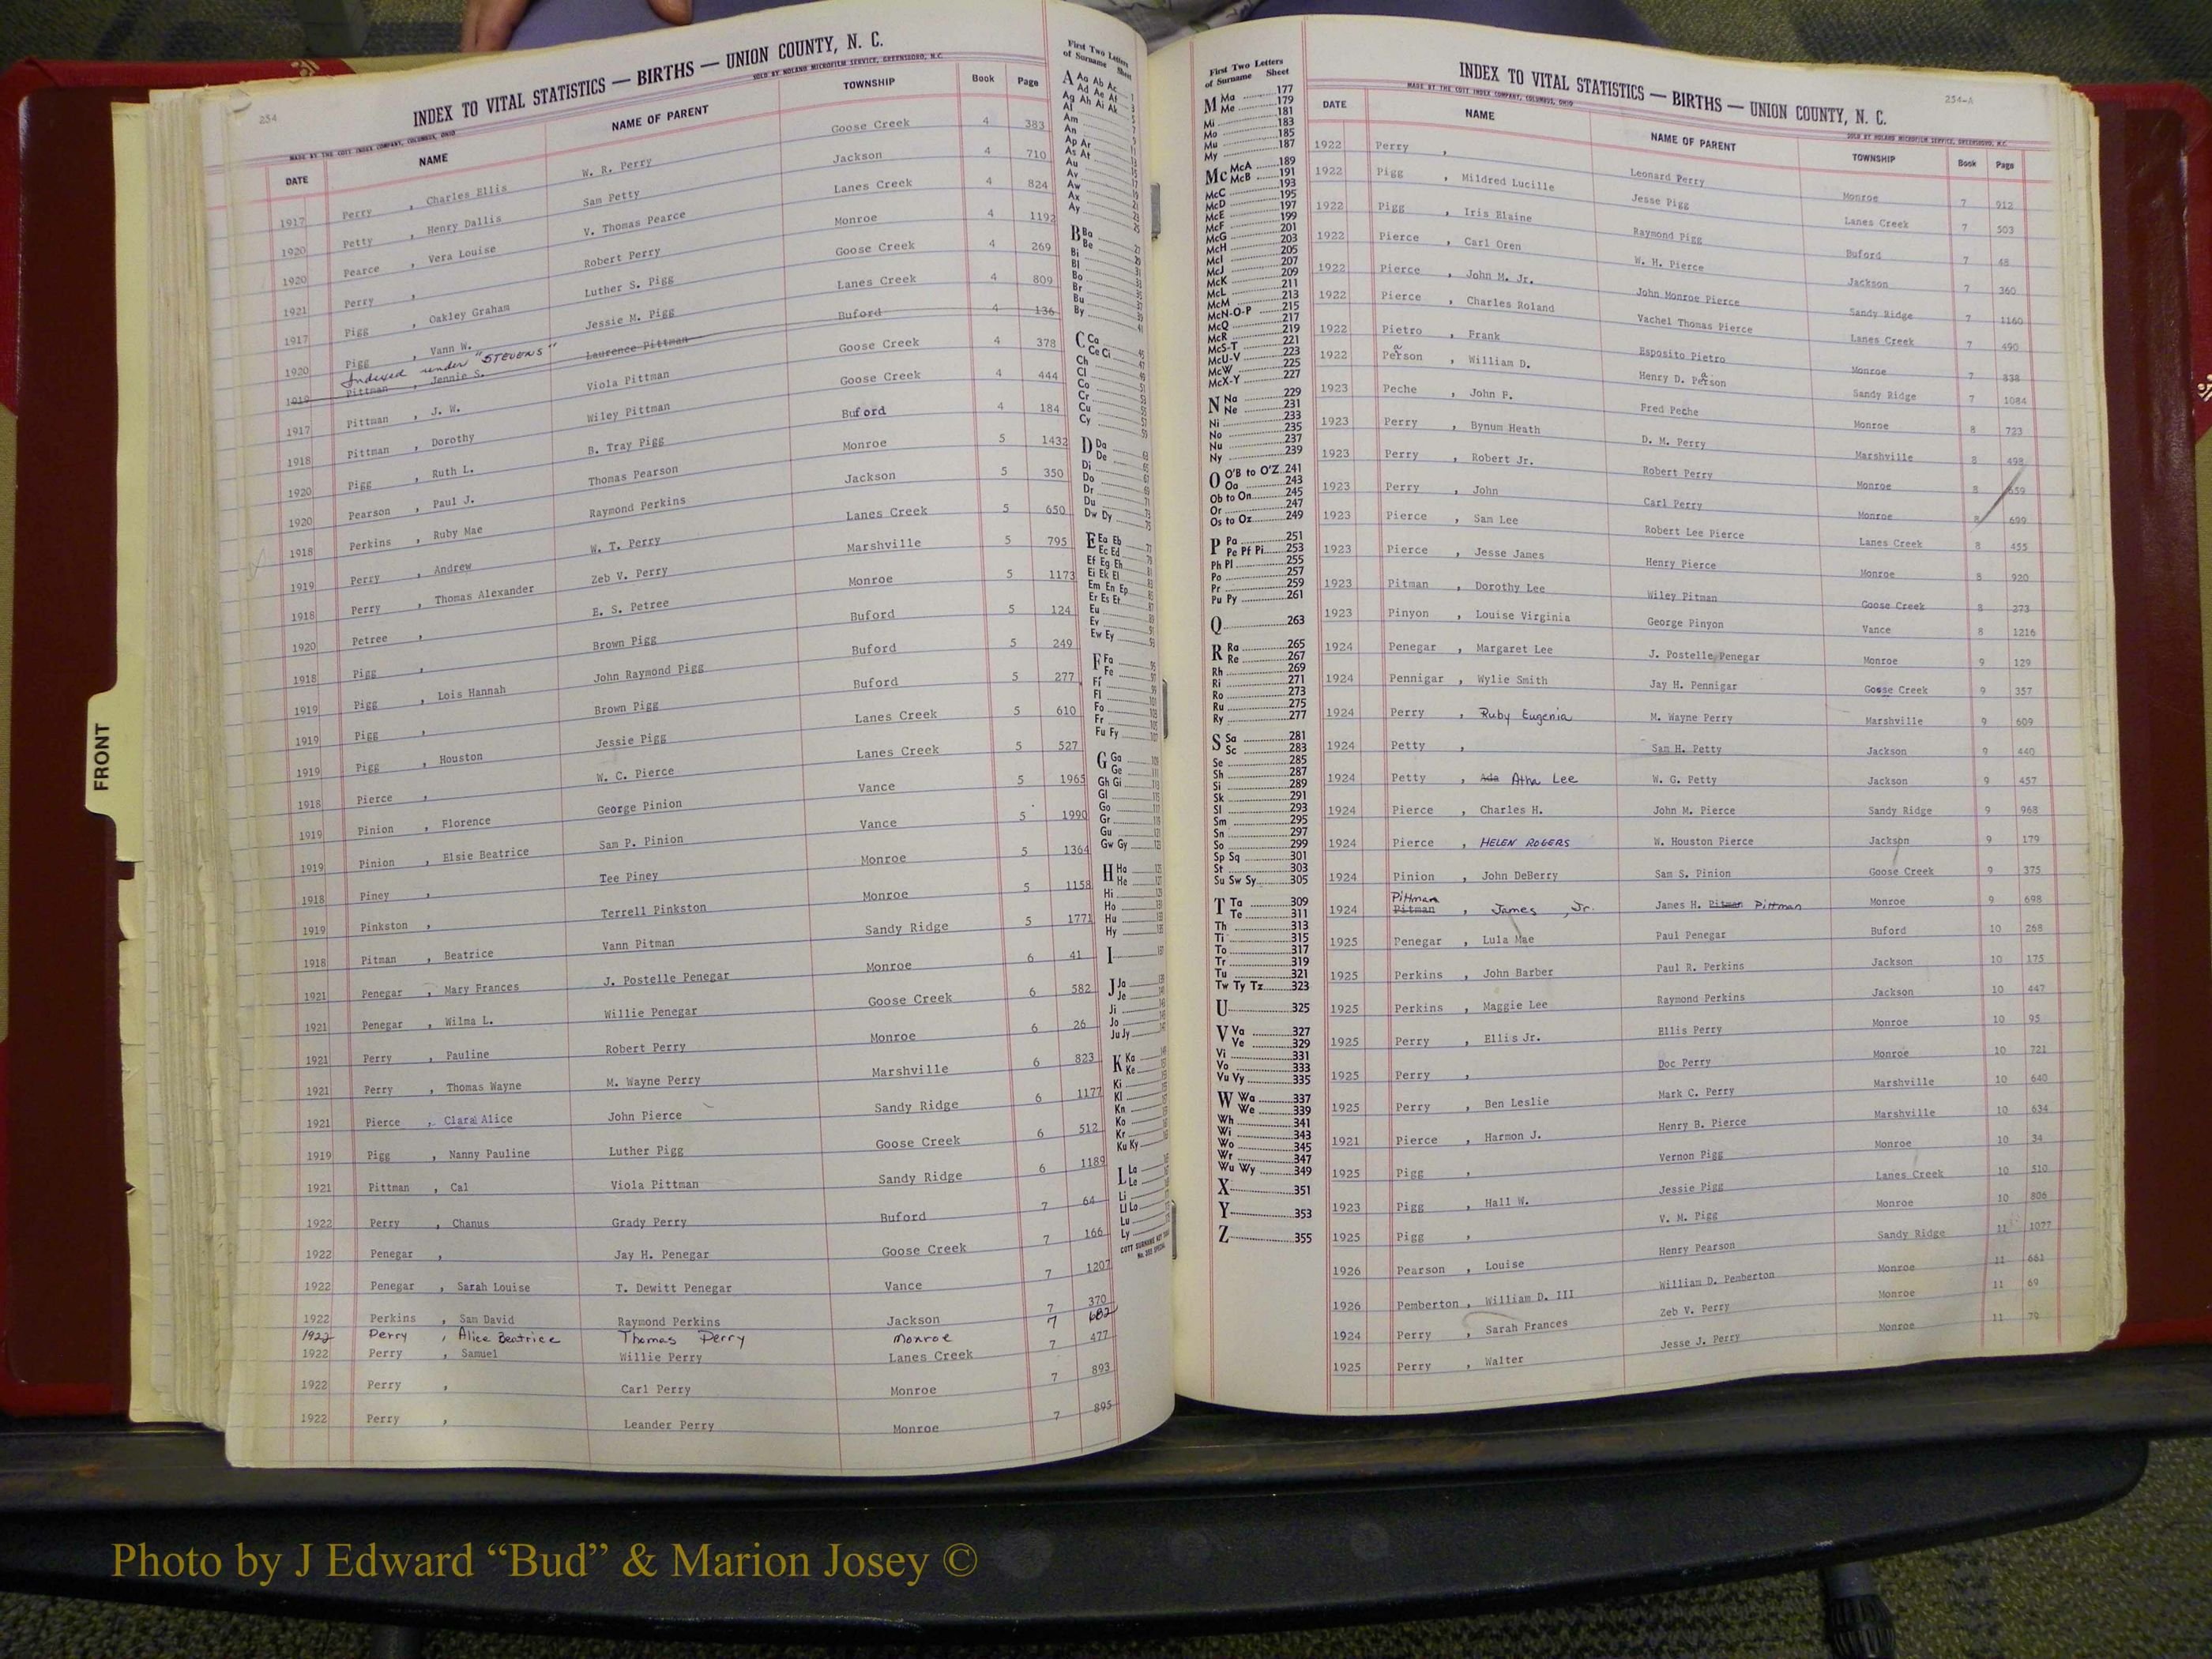 254
INDEX TO VITAL STATISTICS — BIRTHS — UNION COUNTY, N. C.
MADE BY THE COTT INDEX COMPANY, COLUMBUS, OHIO SOLD BY NOLAND MICROFILM SERVICE, GREENSBORO, N.C.
DATE NAME NAME OF PARENT TOWNSHIP Book Page
1917 Perry , Charles Ellis W. R. Perry Goose Creek 4 383
1920 Petty , Henry Dallis Sam Petty Jackson 4 710
1920 Pearce , Vera Louise V. Thomas Pearce Lanes Creek 4 824
1921 Perry , Robert Perry Monroe 4 1192
1917 Pigg , Oakley Graham Luther S. Pigg Goose Creek 4 269
1920 Pigg , Vann W. Jessie M. Pigg Lanes Creek 4 809
Indexed under "STEVENS"
1919 Pittman , Jennie S. Laurence Pittman Buford 4 136
1917 Pittman , J. W. Viola Pittman Goose Creek 4 378
1918 Pittman , Dorothy Wiley Pittman Goose Creek 4 444
1920 Pigg , Ruth L. B. Tray Pigg Buford 4 184
1920 Pearson , Paul J. Thomas Pearson Monroe 5 1432
1918 Perkins , Ruby Mae Raymond Perkins Jackson 5 350
1919 Perry , Andrew W. T. Perry Lanes Creek 5 650
1918 Perry , Thomas Alexander Zeb V. Perry Marshville 5 795
1920 Petree , E. S. Petree Monroe 5 1173
1918 Pigg , Brown Pigg Buford 5 124
1919 Pigg , Lois Hannah John Raymond Pigg Buford 5 249
1919 Pigg , Brown Pigg Buford 5 277
1919 Pigg , Houston Jessie Pigg Lanes Creek 5 610
1918 Pierce , W. C. Pierce Lanes Creek 5 527
1919 Pinion , Florence George Pinion Vance 5 1965
1919 Pinion , Elsie Beatrice Sam P. Pinion Vance 5 1990
1918 Piney , Tee Piney Monroe 5 1364
1919 Pinkston , Terrell Pinkston Monroe 5 1158
1918 Pitman , Beatrice Vann Pitman Sandy Ridge 5 1771
1921 Penegar , Mary Frances J. Postelle Penegar Monroe 6 41
1921 Penegar , Wilma L. Willie Penegar Goose Creek 6 582
1921 Perry , Pauline Robert Perry Monroe 6 26
1921 Perry , Thomas Wayne M. Wayne Perry Marshville 6 823
1921 Pierce , Clara Alice John Pierce Sandy Ridge 6 1177
1919 Pigg , Nanny Pauline Luther Pigg Goose Creek 6 512
1921 Pittman , Cal Viola Pittman Sandy Ridge 6 1189
1922 Perry , Chanus Grady Perry Buford 7 64
1922 Penegar , Jay H. Penegar Goose Creek 7 166
1922 Penegar , Sarah Louise T. Dewitt Penegar Vance 7 1207
1922 Perkins , Sam David Raymond Perkins Jackson 7 370
1922 Perry , Alice Beatrice Thomas Perry Monroe 7 682
1922 Perry , Samuel Willie Perry Lanes Creek 7 477
1922 Perry , Carl Perry Monroe 7 893
1922 Perry , Leander Perry Monroe 7 895
First Two Letters
of Surname Sheet
A Aa Ab Ac
Ad Ae Af
Ag Ah Ai Ak
Al
Am
An
Ap Ar
As At
Au
Av
Aw
Ax
Ay
B Ba
Be
Bi
Bl
Bo
Br
Bu
By
C Ca
Ce Ci
Ch
Cl
Co
Cr
Cu
Cy
D Da
De
Di
Do
Dr
Du
Dw Dy
E Ea Eb
Ec Ed
Ef Eg Eh
Ei Ek El
Em En Ep
Er Es Et
Eu
Ev
Ew Ey
F Fa
Fe
Fi
Fl
Fo
Fr
Fu Fy
G Ga
Ge
Gh Gi
Gl
Go
Gr
Gu
Gw Gy
H Ha
He
Hi
Ho
Hu
Hy
I
J Ja
Je
Ji
Jo
Ju Jy
K Ka
Ke
Ki
Kl
Kn
Ko
Kr
Ku Ky
L La
Le
Li
Ll Lo
Lu
Ly
First Two Letters
of Surname Sheet
M Ma 177
Me 179
Mi 181
Mo 183
Mu 185
My 187
Mc McA 189
McB 191
McC 193
McD 195
McE 197
McF 199
McG 201
McH 203
McI 205
McJ 207
McK 209
McL 211
McM 213
McN-O-P 215
McQ 217
McR 219
McS-T 221
McU-V 223
McW 225
McX-Y 227
N Na 229
Ne 231
Ni 233
No 235
Nu 237
Ny 239
O O'B to O'Z 241
Oa 243
Ob to On 245
Or 247
Os to Oz 249
P Pa 251
Pe Pf Pi 253
Ph Pl 255
Po 257
Pr 259
Pu Py 261
Q 263
R Ra 265
Re 267
Rh 269
Ri 271
Ro 273
Ru 275
Ry 277
S Sa 281
Sc 283
Se 285
Sh 287
Si 289
Sk 291
Sl 293
Sm 295
Sn 297
So 299
Sp Sq 301
St 303
Su Sw Sy 305
T Ta 309
Te 311
Th 313
Ti 315
To 317
Tr 319
Tu 321
Tw Ty Tz 323
U 325
V Va 327
Ve 329
Vi 331
Vo 333
Vu Vy 335
W Wa 337
We 339
Wh 341
Wi 343
Wo 345
Wr 347
Wu Wy 349
X 351
Y 353
Z 355
254-A
INDEX TO VITAL STATISTICS — BIRTHS — UNION COUNTY, N. C.
MADE BY THE COTT INDEX COMPANY, COLUMBUS, OHIO SOLD BY NOLAND MICROFILM SERVICE, GREENSBORO, N.C.
DATE NAME NAME OF PARENT TOWNSHIP Book Page
1922 Perry , Leonard Perry Monroe 7 912
1922 Pigg , Mildred Lucille Jesse Pigg Lanes Creek 7 503
1922 Pigg , Iris Elaine Raymond Pigg Buford 7 48
1922 Pierce , Carl Oren W. H. Pierce Jackson 7 360
1922 Pierce , John M. Jr. John Monroe Pierce Sandy Ridge 7 1160
1922 Pierce , Charles Roland Vachel Thomas Pierce Lanes Creek 7 490
1922 Pietro , Frank Esposito Pietro Monroe 7 838
1922 Person , William D. Henry D. Person Sandy Ridge 7 1084
1923 Peche , John F. Fred Peche Monroe 8 723
1923 Perry , Bynum Heath D. M. Perry Marshville 8 498
1923 Perry , Robert Jr. Robert Perry Monroe 8 659
1923 Perry , John Carl Perry Monroe 8 699
1923 Pierce , Sam Lee Robert Lee Pierce Lanes Creek 8 455
1923 Pierce , Jesse James Henry Pierce Monroe 8 920
1923 Pitman , Dorothy Lee Wiley Pitman Goose Creek 8 273
1923 Pinyon , Louise Virginia George Pinyon Vance 8 1216
1924 Penegar , Margaret Lee J. Postelle Penegar Monroe 9 129
1924 Pennigar , Wylie Smith Jay H. Pennigar Goose Creek 9 357
1924 Perry , Ruby Eugenia M. Wayne Perry Marshville 9 609
1924 Petty , Sam H. Petty Jackson 9 440
1924 Petty , Ada Atha Lee W. G. Petty Jackson 9 457
1924 Pierce , Charles H. John M. Pierce Sandy Ridge 9 968
1924 Pierce , HELEN ROGERS W. Houston Pierce Jackson 9 179
1924 Pinion , John DeBerry Sam S. Pinion Goose Creek 9 375
Pittman
1924 Pitman , James , Jr. James H. Pitman Pittman Monroe 9 698
1925 Penegar , Lula Mae Paul Penegar Buford 10 268
1925 Perkins , John Barber Paul R. Perkins Jackson 10 175
1925 Perkins , Maggie Lee Raymond Perkins Jackson 10 447
1925 Perry , Ellis Jr. Ellis Perry Monroe 10 95
1925 Perry , Doc Perry Monroe 10 721
1925 Perry , Ben Leslie Mark C. Perry Marshville 10 640
1921 Pierce , Harmon J. Henry B. Pierce Marshville 10 634
1925 Pigg , Vernon Pigg Monroe 10 34
1923 Pigg , Hall W. Jessie Pigg Lanes Creek 10 510
1925 Pigg , V. M. Pigg Monroe 10 806
1926 Pearson , Louise Henry Pearson Sandy Ridge 11 1077
1926 Pemberton , William D. III William D. Pemberton Monroe 11 661
1924 Perry , Sarah Frances Zeb V. Perry Monroe 11 69
1925 Perry , Walter Jesse J. Perry Monroe 11 70
FRONT
Photo by J Edward “Bud” & Marion Josey ©